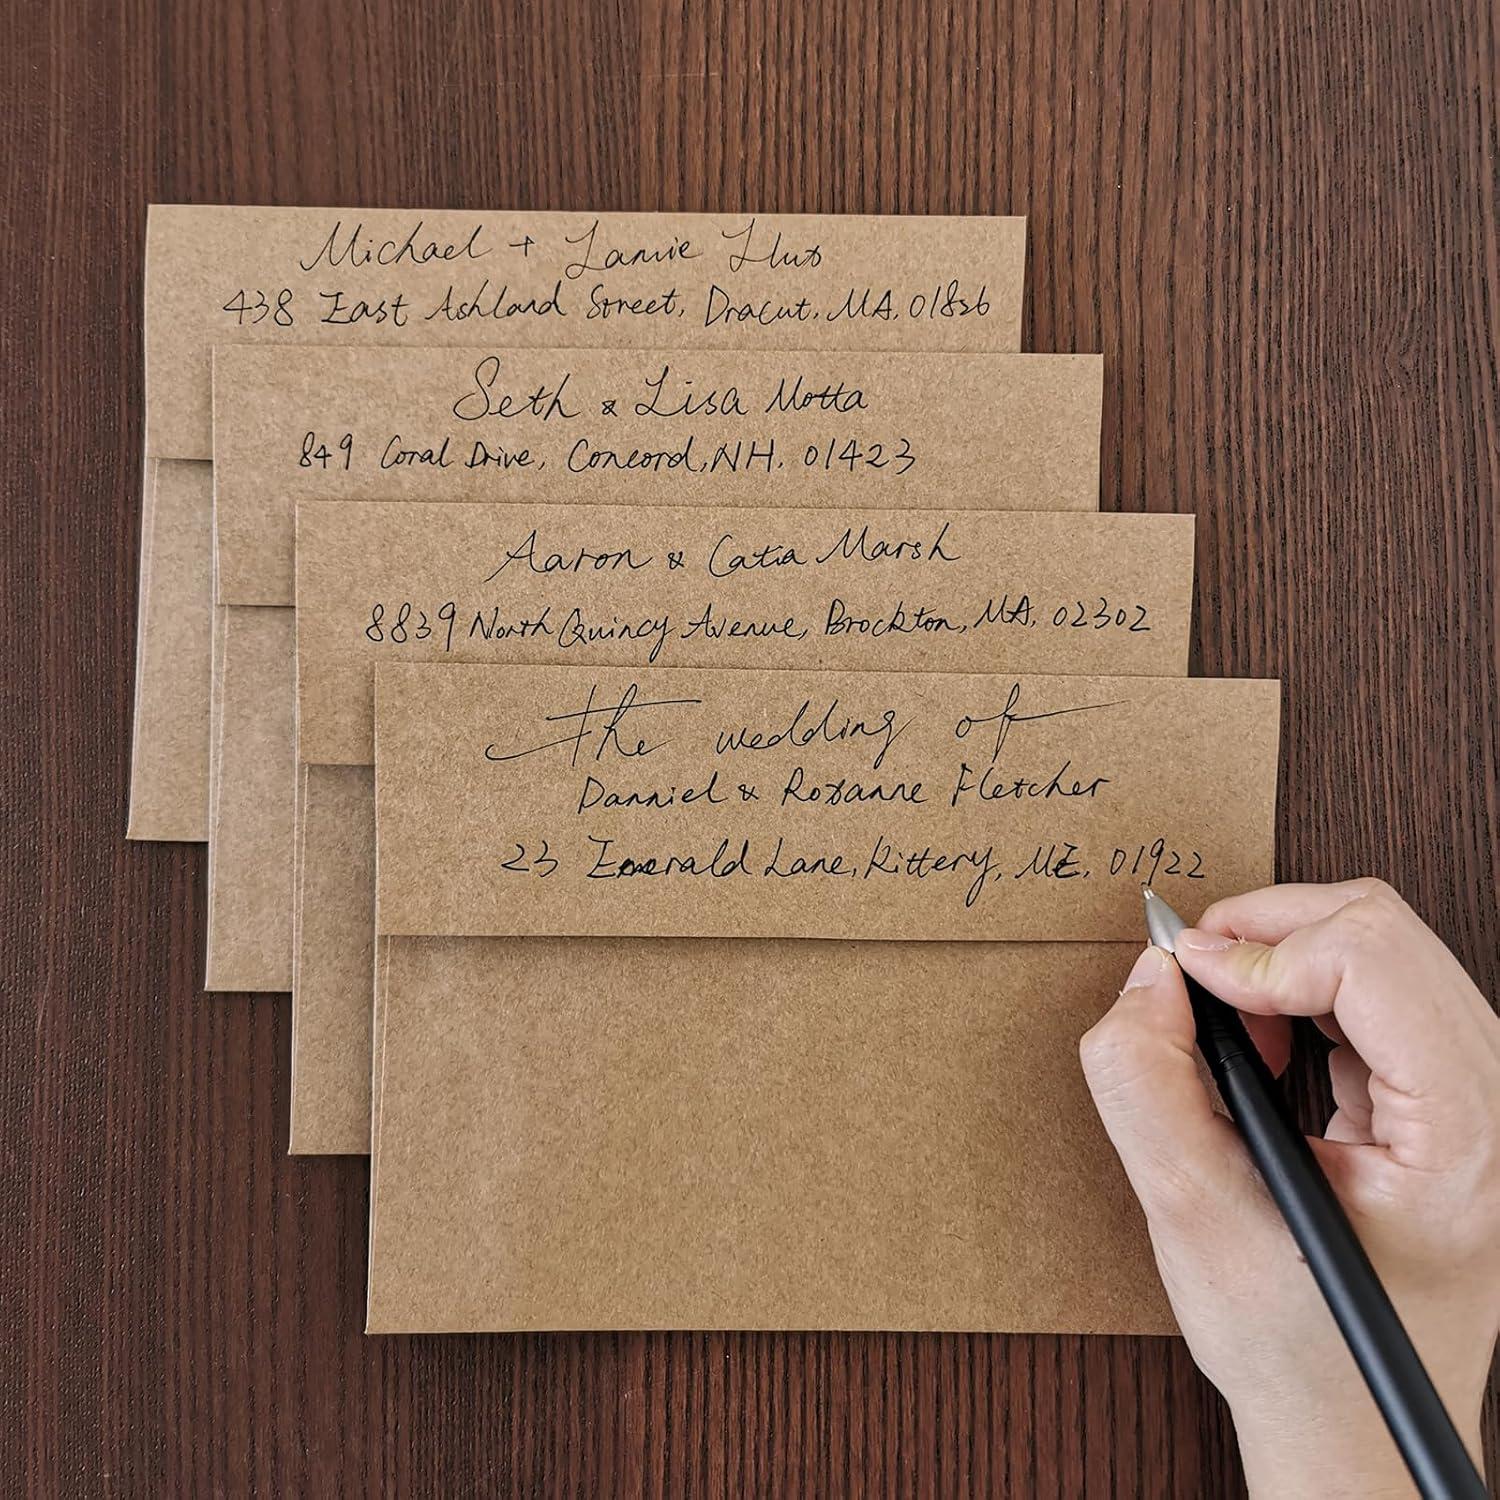 Michael + Jamie
438 East Ashland Street, Dracut, MA, 01826
Seth & Lisa Motta
849 Coral Drive, Concord, NH. 01423
Aaron & Catia Marsh
8839 North Quincy Avenue, Brockton, MA, 02302
The wedding of
Danniel & Roxanne Fletcher
23 Emerald Lane, Kittery, ME, 01922